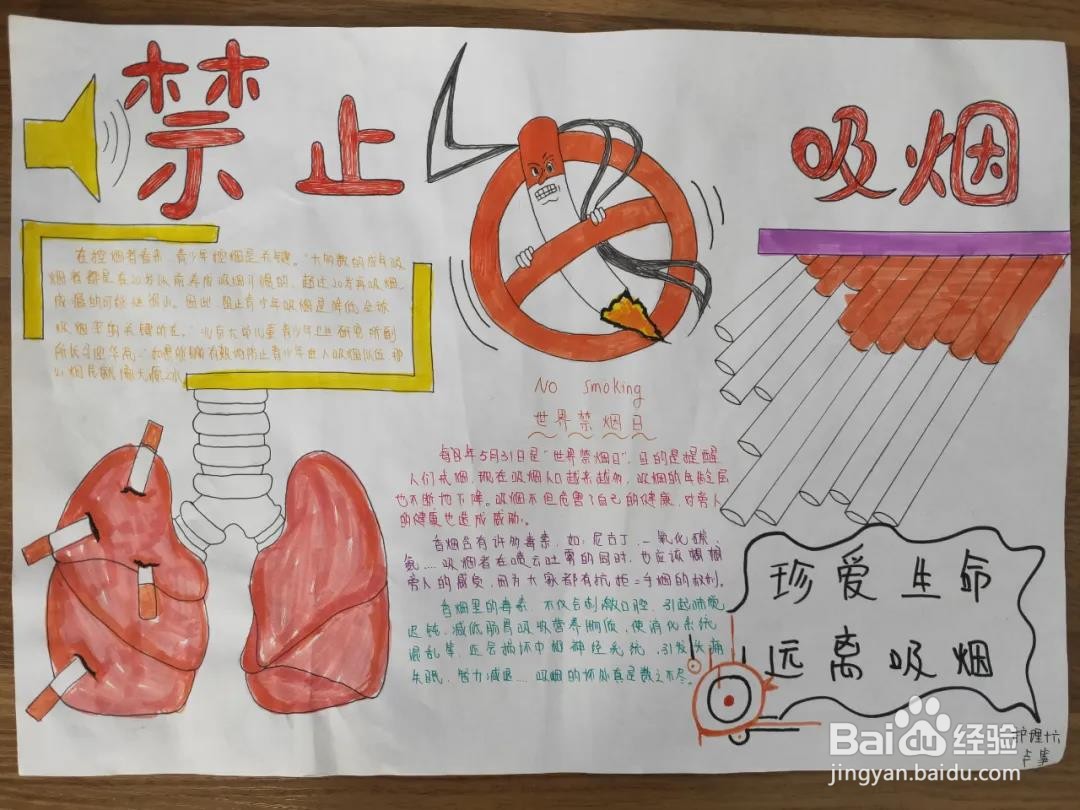 禁止
吸烟
在控烟者看来,青少年控烟是关键。“大多数的成年吸
烟者都是在20岁以前养成吸烟习惯的,超过20岁再吸烟,
成瘾的可能性很小。因此,阻止青少年吸烟是降低全球
吸烟率的关键所在。”北京大学儿童青少年卫生研究所副
所长
No smoking
世界禁烟日
每年5月31日是“世界禁烟日”,目的是提醒
人们戒烟,现在吸烟人口越来越多,吸烟的年龄层
也不断地下降。吸烟不但危害了自己的健康,对旁人
的健康也造成威胁。
香烟含有许多毒素,如:尼古丁、一氧化碳、
氨....吸烟者在喷云吐雾的同时,也应该想想
旁人的感负,因为大家都有抗拒二手烟的权利。
香烟里的毒素,不仅会刺激口腔,引起味觉
迟钝,减低肠胃吸收营养物质,使消化系统
混乱等,还会损坏中枢神经系统,引发头痛
失眠,智力减退....吸烟的坏处真是数之不尽。
珍爱生命
远离吸烟
护理十六
Baidu经验
jingyan.baidu.com